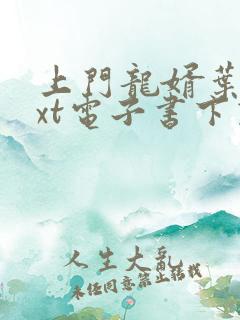 土門龍婿葉
xt電子書下
人生大亂
未经同意禁止转载